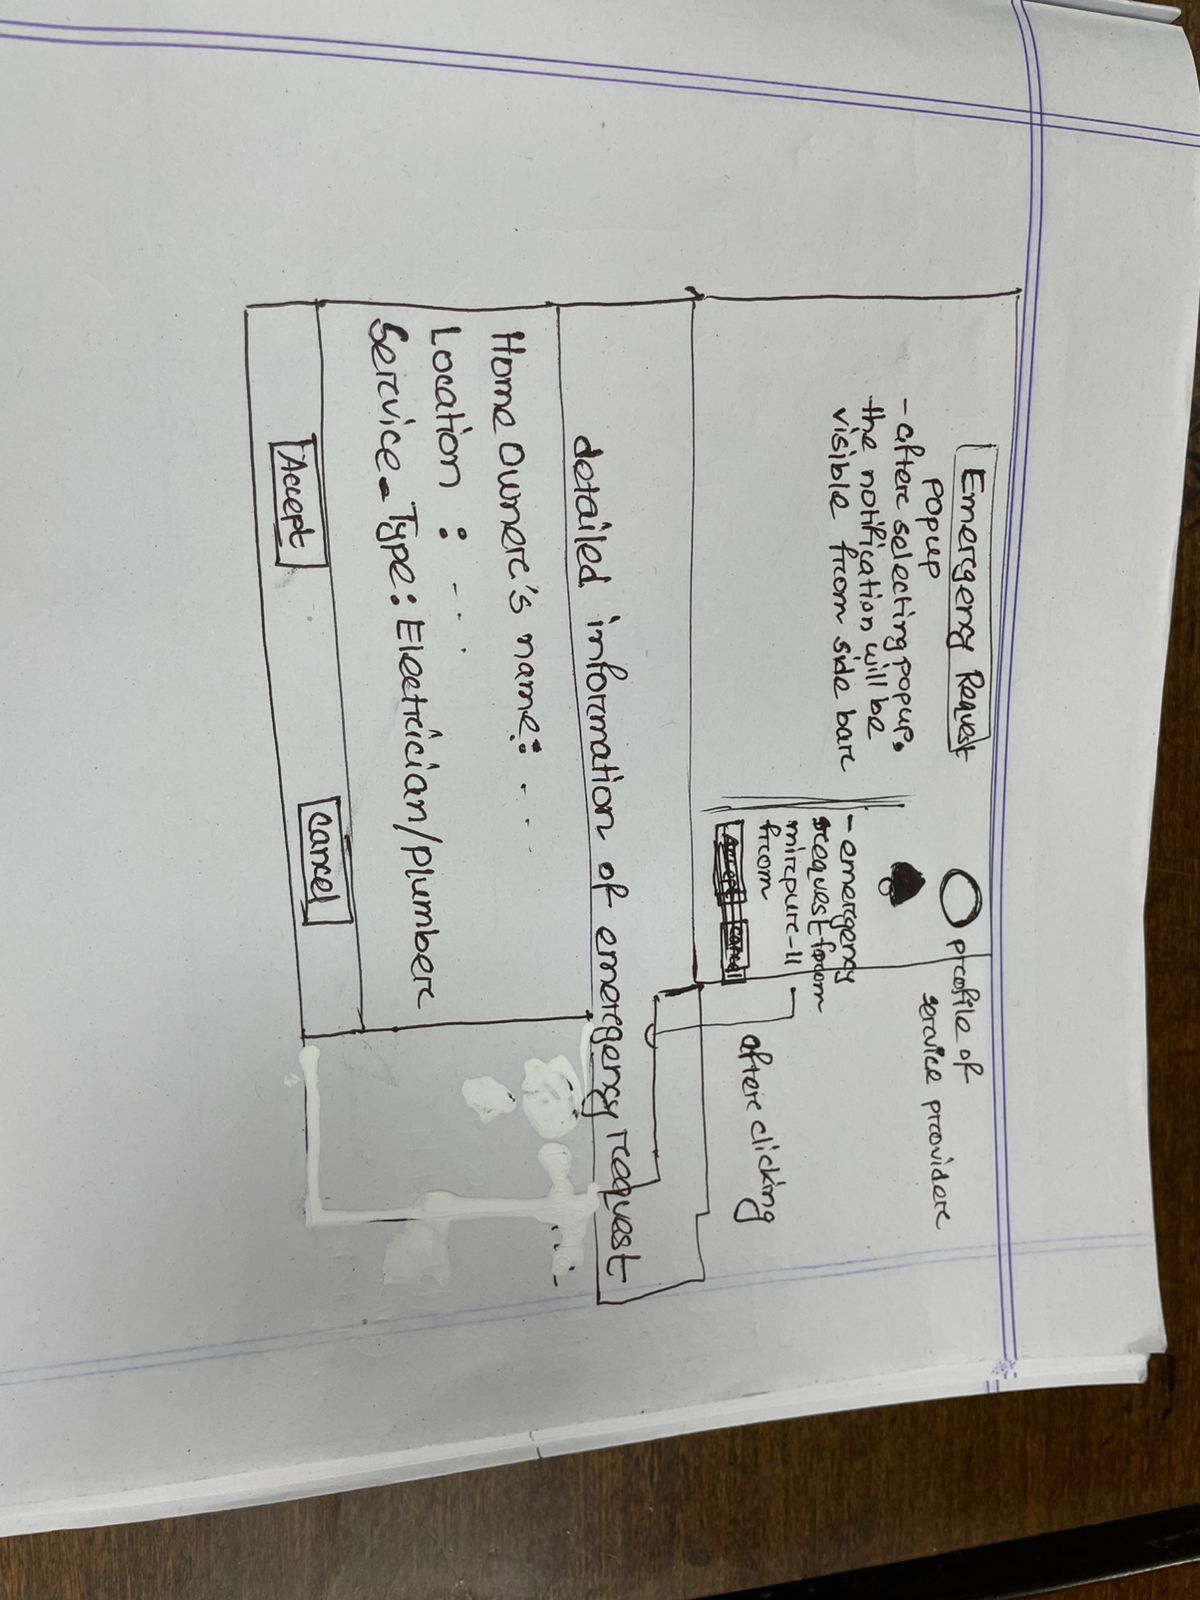 Emergency Request
popup
- after selecting popup,
the notification will be
visible from side bar
profile of
service provider
- emergency
request from
mirpur-11
from
Accept Cancel
after clicking
detailed information of emergency request
Home Owner's name: ...
Location : ...
Service-Type: Electrician/plumber
Accept
Cancel